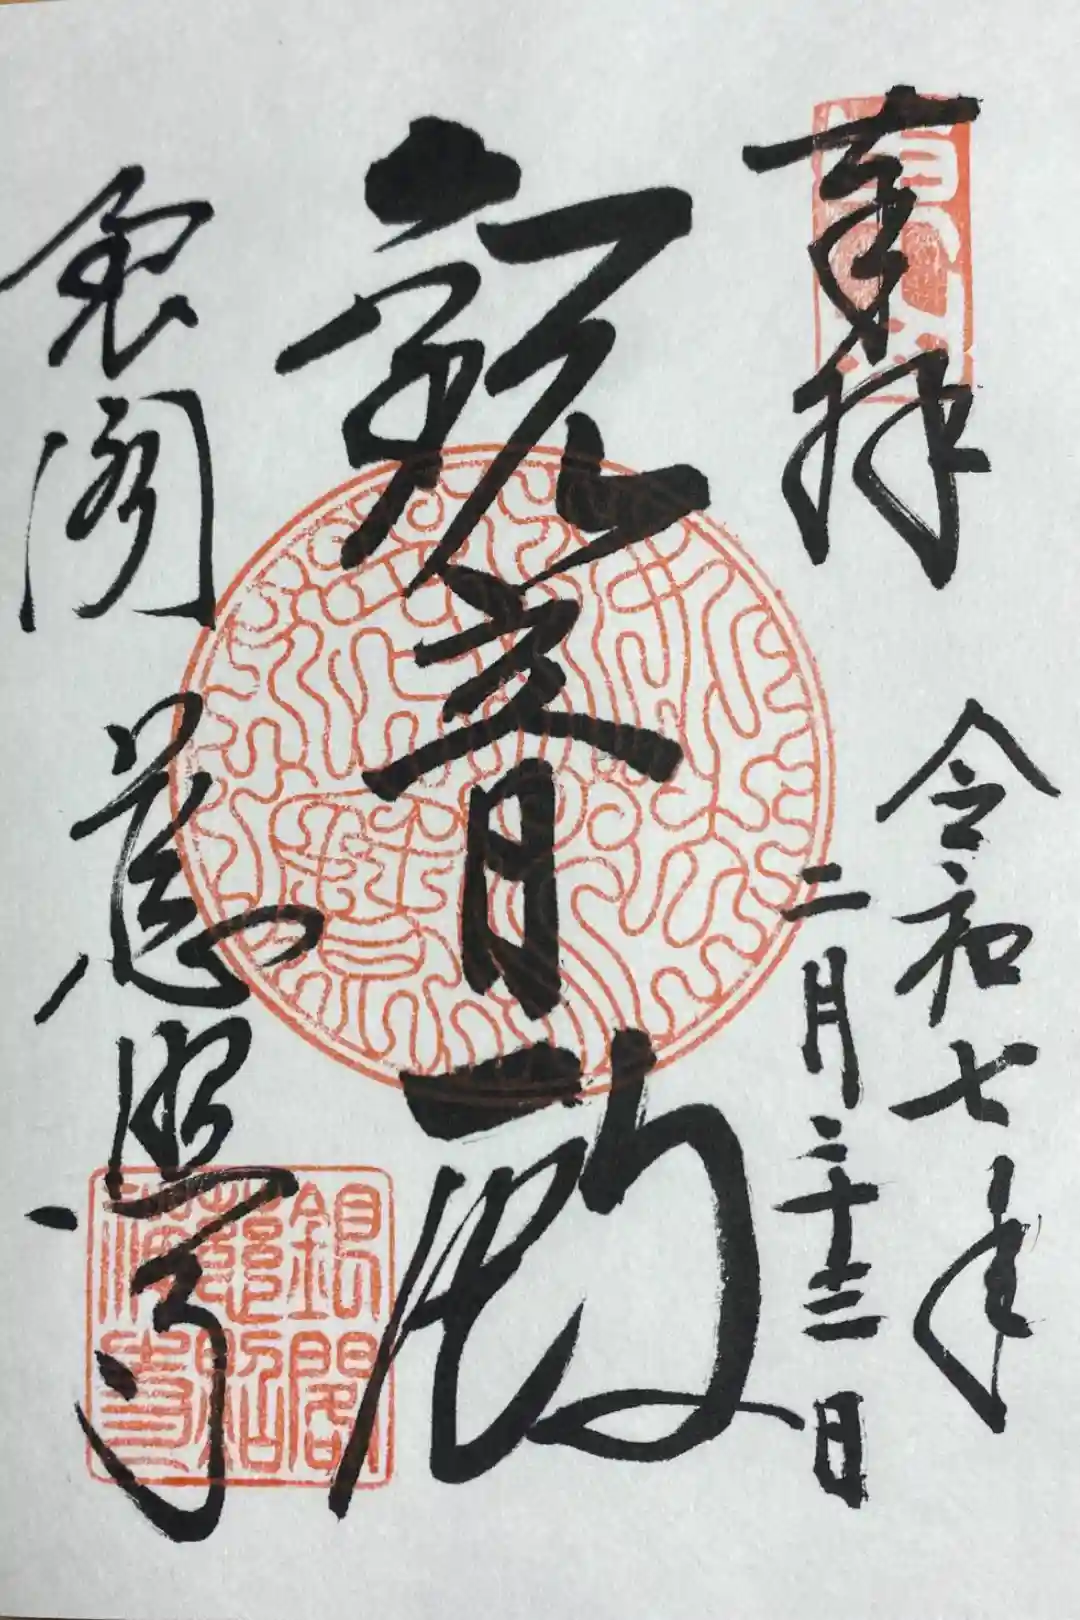 奉拝
令和七年
二月二十三日
観音殿
銀閣 慈照寺
銀閣
慈照
禅寺